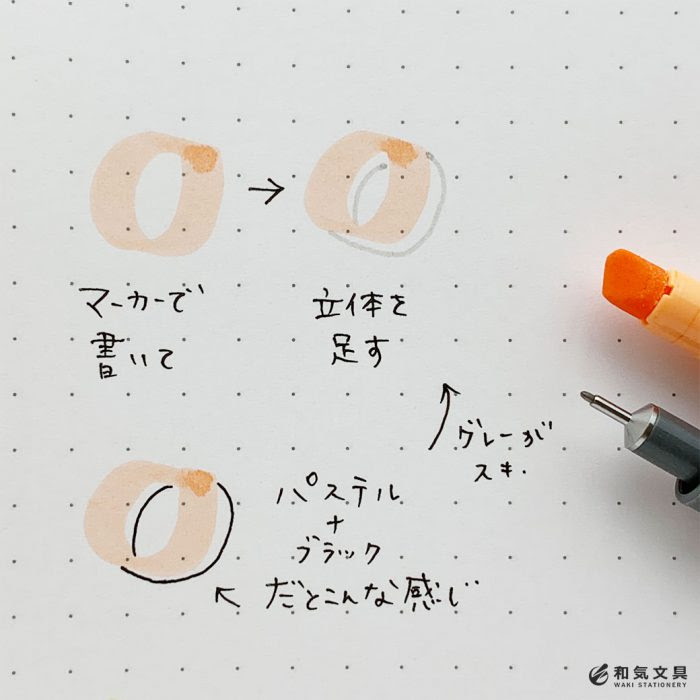 マーカーで
書いて
→
立体を
足す
グレーが
スキ.
パステル
+
ブラック
だとこんな感じ
和気文具
WAKI STATIONERY